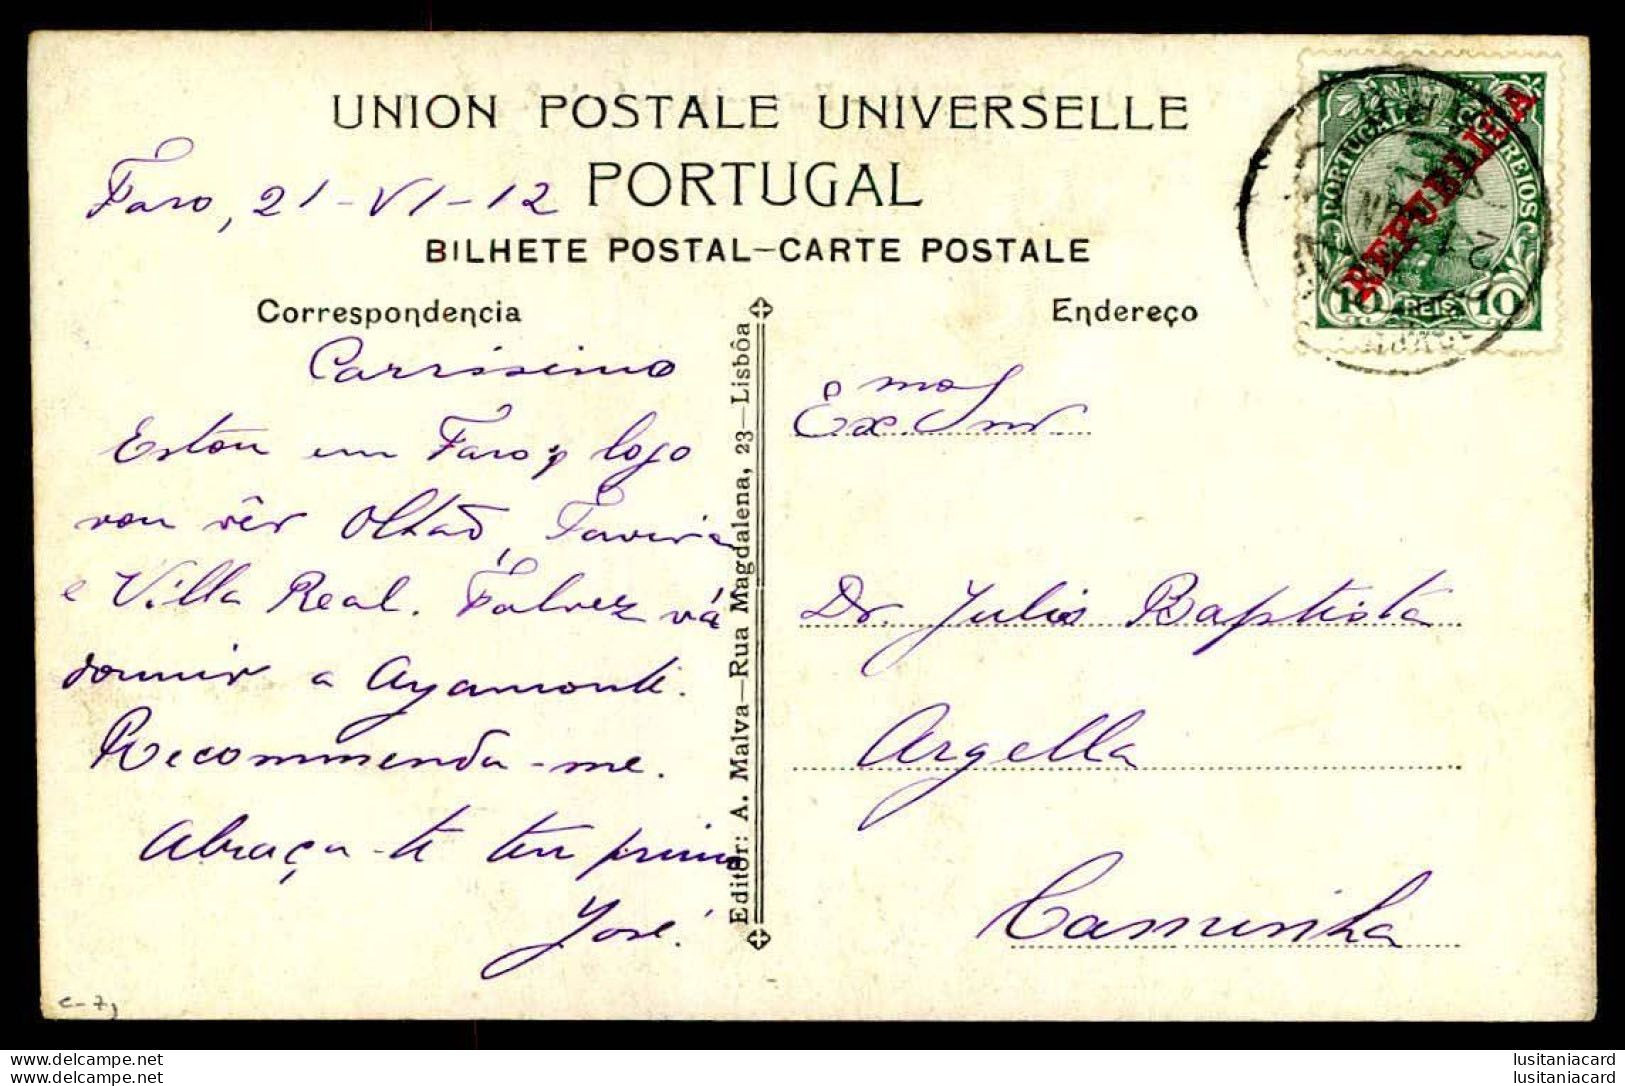 UNION POSTALE UNIVERSELLE
PORTUGAL
BILHETE POSTAL—CARTE POSTALE
Faro, 21-VI-12
Correspondencia
Carissimo
Estou em Faro e logo
vou vêr Olhão, Tavira
e Villa Real. Talvez vá
dormir a Ayamonte.
Recommenda-me.
Abraça-te teu primo
José.
Editor: A. Malva—Rua Magdalena, 23—Lisbôa
Endereço
Ex.mo Snr.
Dr. Julio Baptista
Argella
Caminha
PORTUGAL CORREIOS
REPUBLICA
10 REIS 10
c-7,
www.delcampe.net
www.delcampe.net
lusitaniacard
lusitaniacard